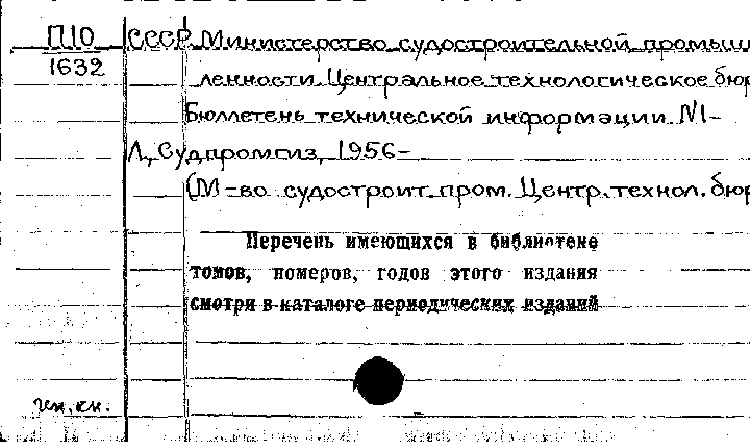 П10 СССР. Министерство судостроительной промыш
1632 ленности. Центральное технологическое бюр
Бюллетень технической информации. №1-
Л., Судпромгиз, 1956-
(М-во судостроит. пром. Центр. технол. бюр
Перечень имеющихся в библиотеке
томов, номеров, годов этого издания
смотри в каталоге периодических изданий